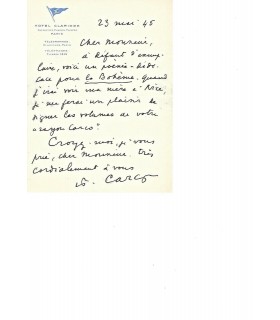 HOTEL CLARIDGE
PARIS
23 mai 45
Cher Monsieur,
à défaut d'exemplaire, voici un poème-dédicace pour La Bohème. quand
j'irai voir ma mère à Nice,
je me ferai un plaisir de
signer les volumes de votre
"rayon Carco".
Croyez-moi, je vous
prie, cher Monsieur très
cordialement à vous
F. Carco